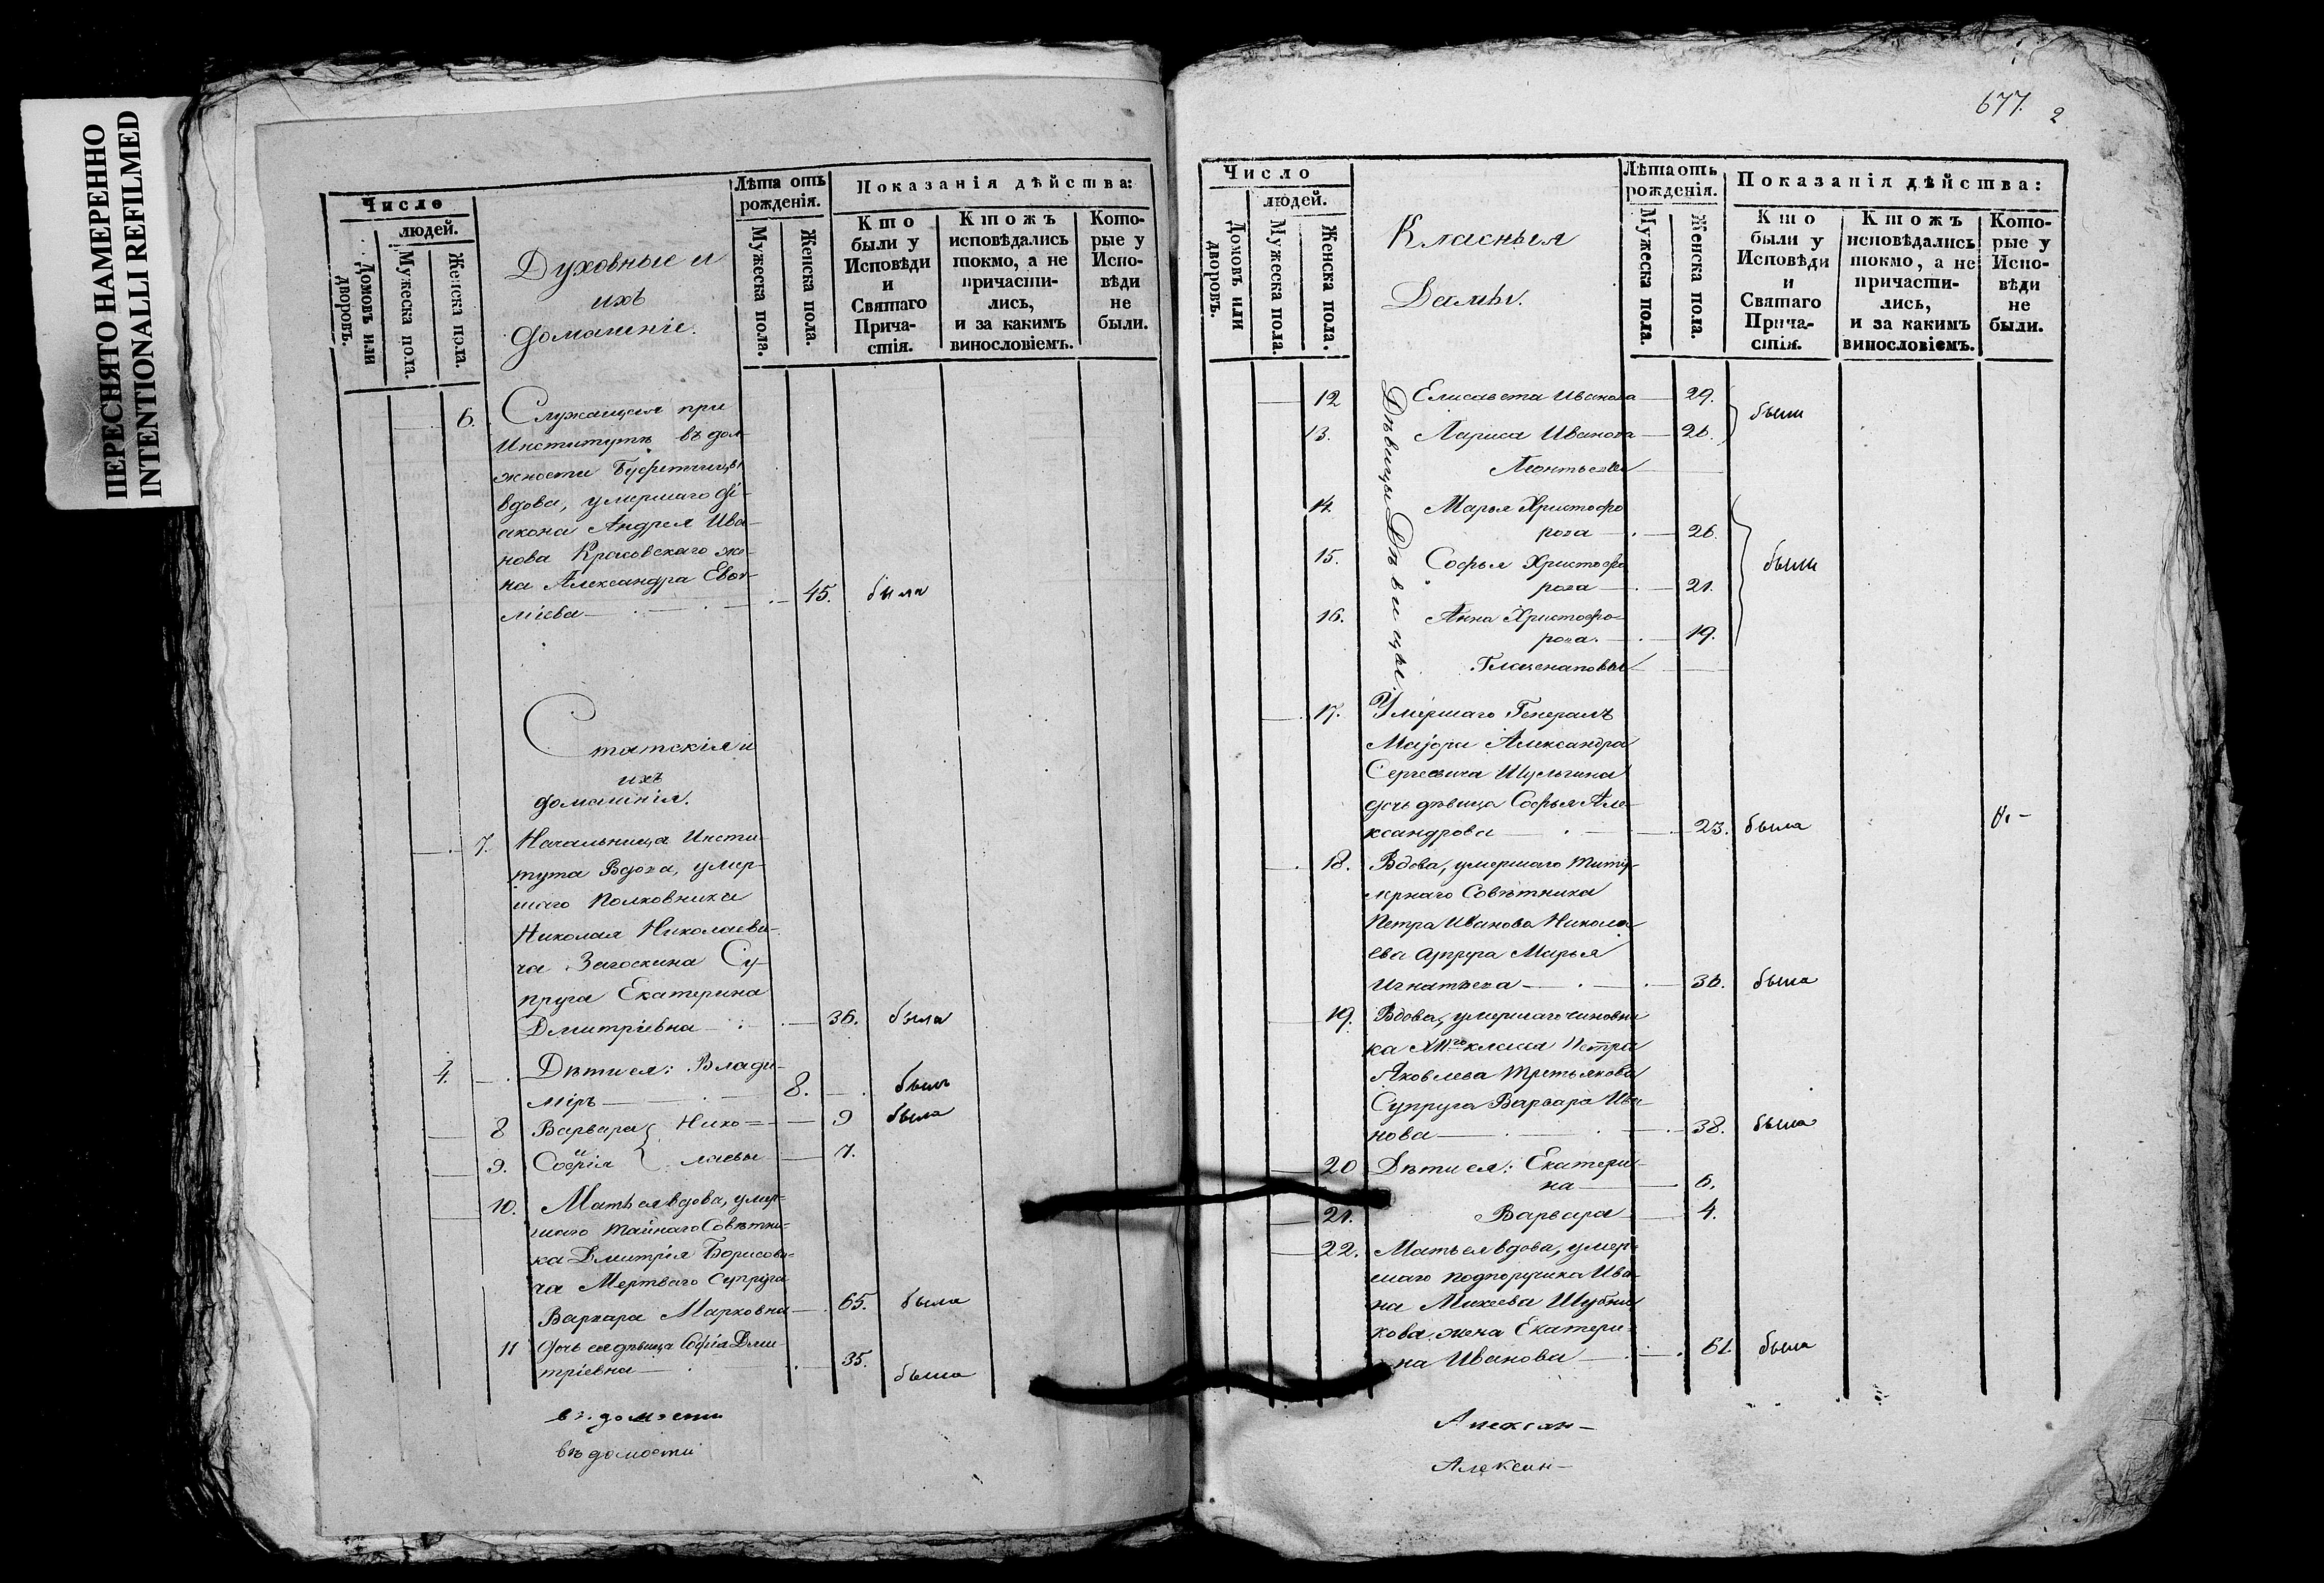 ПЕРЕСНЯТО НАМЕРЕННО
INTENTIONALLI REFILMED
Число
людей.
Домовъ или дворовъ.
Мужеска пола.
Женска пола.
Духовные и
ихъ
домашніе.
Лѣта отъ
рожденія.
Мужеска пола.
Женска пола.
Показанія дѣйства:
Кто
были у
Исповѣди
и
Святаго
Прича-
стія.
Ктожъ
исповѣдались
токмо, а не
причасти-
лись,
и за какимъ
винословіемъ.
Кото-
рые у
Испо-
вѣди
не
были.
6. Служащая при
Институтѣ въ дол-
жности Буфетчицы
вдова, умершаго ді-
акона Андрея Ива-
нова Красовскаго же-
на Александра Евѳи-
міева 45. была
Статскія и
ихъ
домашнія.
7. Начальница Инсти-
тута Вдова, умер-
шаго Полковника
Николая Николаеви-
ча Загоскина Су-
пруга Екатерина
Дмитріевна 36. была
4. Дѣти ея: Влади-
міръ 8. былъ
8 Варвара Нико= 9 была
и
9. Софія лаевы 7.
10. Мать ея вдова, умер-
шаго Тайнаго Совѣтни-
ка Дмитрія Борисови-
ча Мертваго Супруга
Варвара Марковна 65. была
11 Дочь ея дѣвица Софія Дми-
тріевна 35. была
вѣдомости
вѣдомости
677. 2
Число
людей.
Домовъ или дворовъ.
Мужеска пола.
Женска пола.
Класныя
Дамы.
Лѣта отъ
рожденія.
Мужеска пола.
Женска пола.
Показанія дѣйства:
Кто
были у
Исповѣди
и
Святаго
Прича-
стія.
Ктожъ
исповѣдались
токмо, а не
причасти-
лись,
и за какимъ
винословіемъ.
Кото-
рые у
Испо-
вѣди
не
были.
Дѣвицы
12 Елисавета Иванова 29.
были
13. Лариса Иванова 26.
Леонтьевы
Дѣвицы.
14. Марья Христофо
рова 26.
15. Софья Христофо
рова 21.
были
16. Анна Христофо-
рова. 19.
Глазенаповы
17. Умершаго Генералъ
Маіора Александра
Сергеевича Шульгина
дочь дѣвица Софья Але-
ксандрова 23. была
18. Вдова, умершаго титу-
лярнаго Совѣтника
Петра Иванова Никола-
ева супруга Марья
Игнатьева 36. была
19. Вдова, умершаго чиновни
ка класса Петра
Яковлева Третьякова
Супруга Варвара Ива-
нова 38. была
20 Дѣти ея: Екатери-
на 6.
21. Варвара 4.
22. Мать ея вдова, умер-
шаго подпоручика Ива-
на Михеева Шубни
кова жена Екатери-
на Иванова 61. была
Алексан-
Алексан-